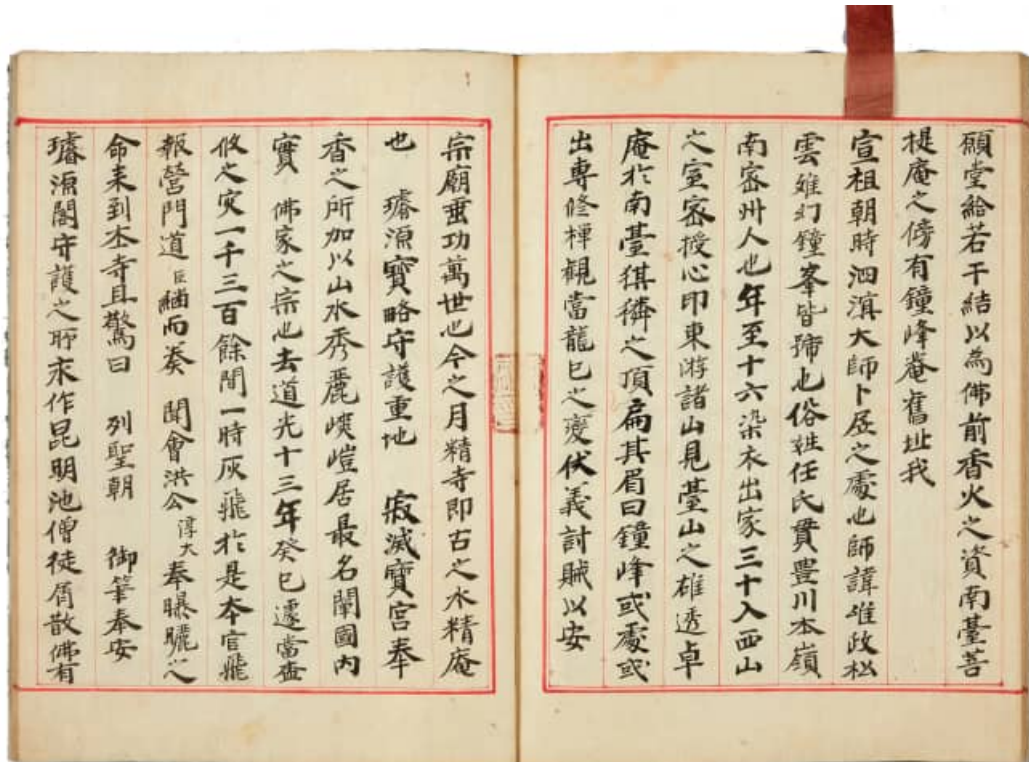 願堂給若干結以為佛前香火之資南臺菩
提庵之傍有鐘峰菴舊址我
宣祖朝時泗溟大師卜居之處也師諱惟政松
雲雖幻鐘峯皆號也俗姓任氏貫豊川本嶺
南密州人也年至十六染衣出家三十入西山
之室密授心印東游諸山見臺山之雄透卓
庵於南臺猉獜之頂扁其眉曰鐘峰或處或
出專修禪觀當龍巳之变伏義討賊以安
宗廟垂功萬世也今之月精寺即古之水精庵
也 璿源寶略守護重地 寂滅寶宮奉
香之所加以山水秀麗峻嶝居最名闡國內
實 佛家之宗也去道光十三年癸巳遽當盃
攸之灾一千三百餘間一時灰飛於是本官飛
報營門道臣緬而奏 聞會洪公淳大奉曝曬之
命来到本寺且驚曰 列聖朝 御筆奉安
璿源閣守護之所求作昆明池僧徒屑散佛有